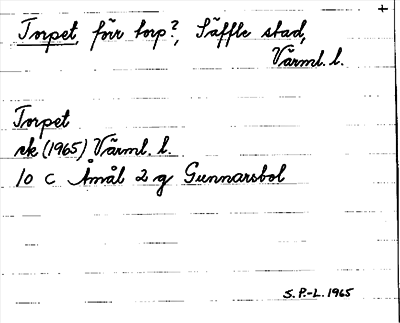 Torpet, förr torp?, Säffle stad,
Värml. l.
Torpet
rk (1965) Värml. l.
10 C Åmål 2 g Gunnarsbol
S.P.-L. 1965